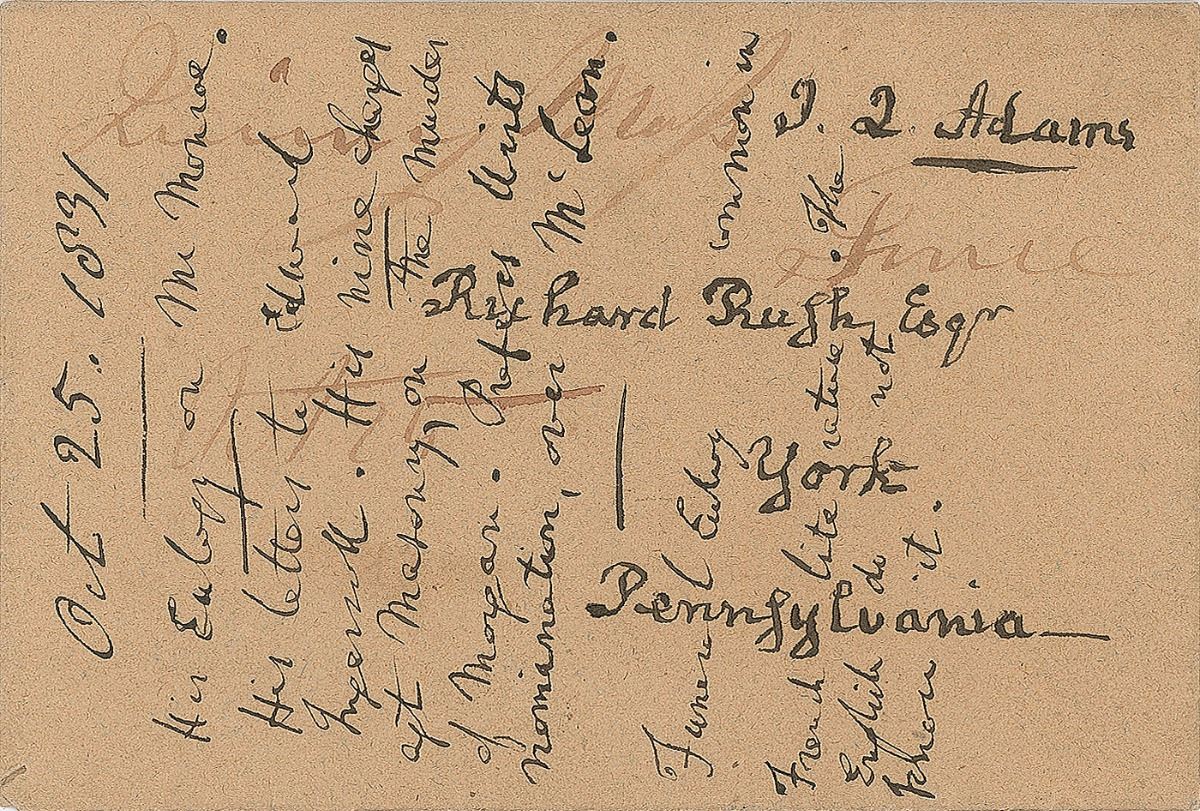 J. Q. Adams
Richard Rush Esqr
York
Pennsylvania
Oct 25. 1831
His Eulogy on Mr Monroe.
His letter to Edward
Ingersoll. His nine charges
agt Masonry, on the murder
of Morgan. Prefers Wirts
nomination, over Mc Lean.
Funeral Eulogy common in
French literature. The
English do not
know it.
Quincy Mass